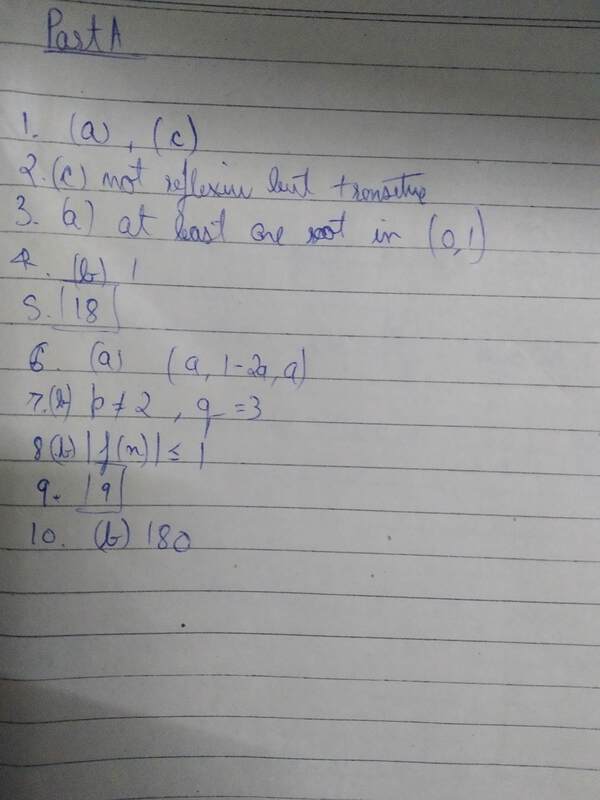 Part A
1. (a), (c)
2. (c) not reflexive but transitive
3. (a) at least one root in (0,1)
4. (b) 1
5. |18|
6. (a) (a, 1-2a, a)
7. (b) p ≠ 2, q = 3
8 (b) |f(x)| ≤ 1
9. |9|
10. (b) 180